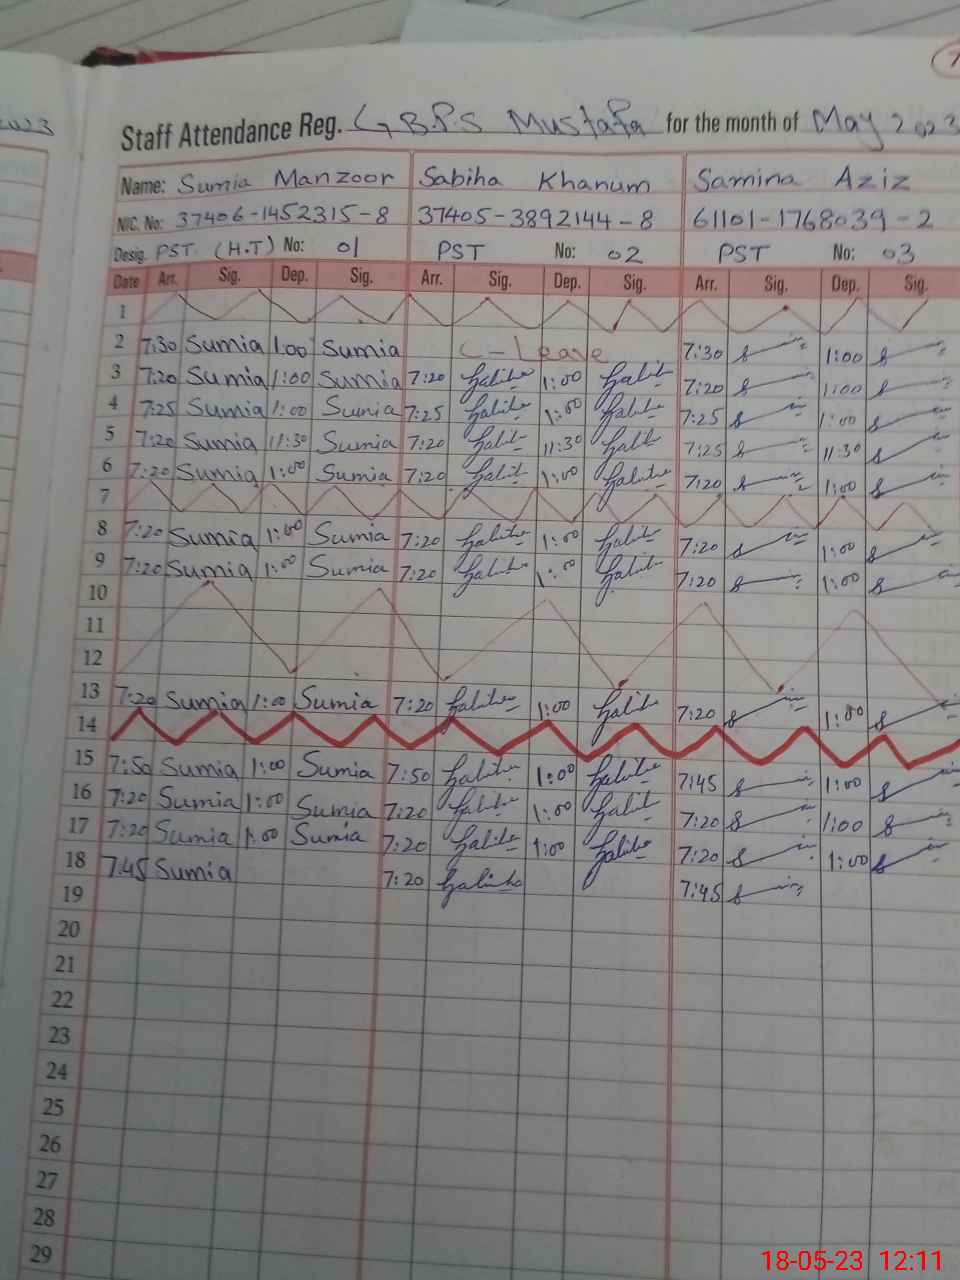 2023
Staff Attendance Reg. G.B.P.S Mustafa for the month of May 2023
Name: Sumia Manzoor Sabiha Khanum Samina Aziz
NIC. No: 37406-1452315-8 37405-3892144-8 61101-1768039-2
Desig. PST (H.T) No: 01 PST No: 02 PST No: 03
Date Arr. Sig. Dep. Sig. Arr. Sig. Dep. Sig. Arr. Sig. Dep. Sig.
1
2 7:30 Sumia 1:00 Sumia C-Leave 7:30 1:00
3 7:20 Sumia 1:00 Sumia 7:20 1:00 7:20 1:00
4 7:25 Sumia 1:00 Sumia 7:25 1:00 7:25 1:00
5 7:20 Sumia 11:30 Sumia 7:20 11:30 7:25 11:30
6 7:20 Sumia 1:00 Sumia 7:20 1:00 7:20 1:00
7
8 7:20 Sumia 1:00 Sumia 7:20 1:00 7:20 1:00
9 7:20 Sumia 1:00 Sumia 7:20 1:00 7:20 1:00
10
11
12
13 7:20 Sumia 1:00 Sumia 7:20 1:00 7:20 1:00
14
15 7:50 Sumia 1:00 Sumia 7:50 1:00 7:45 1:00
16 7:20 Sumia 1:00 Sumia 7:20 1:00 7:20 1:00
17 7:20 Sumia 1:00 Sumia 7:20 1:00 7:20 1:00
18 7:45 Sumia 7:20 7:45
19
20
21
22
23
24
25
26
27
28
29
18-05-23 12:11